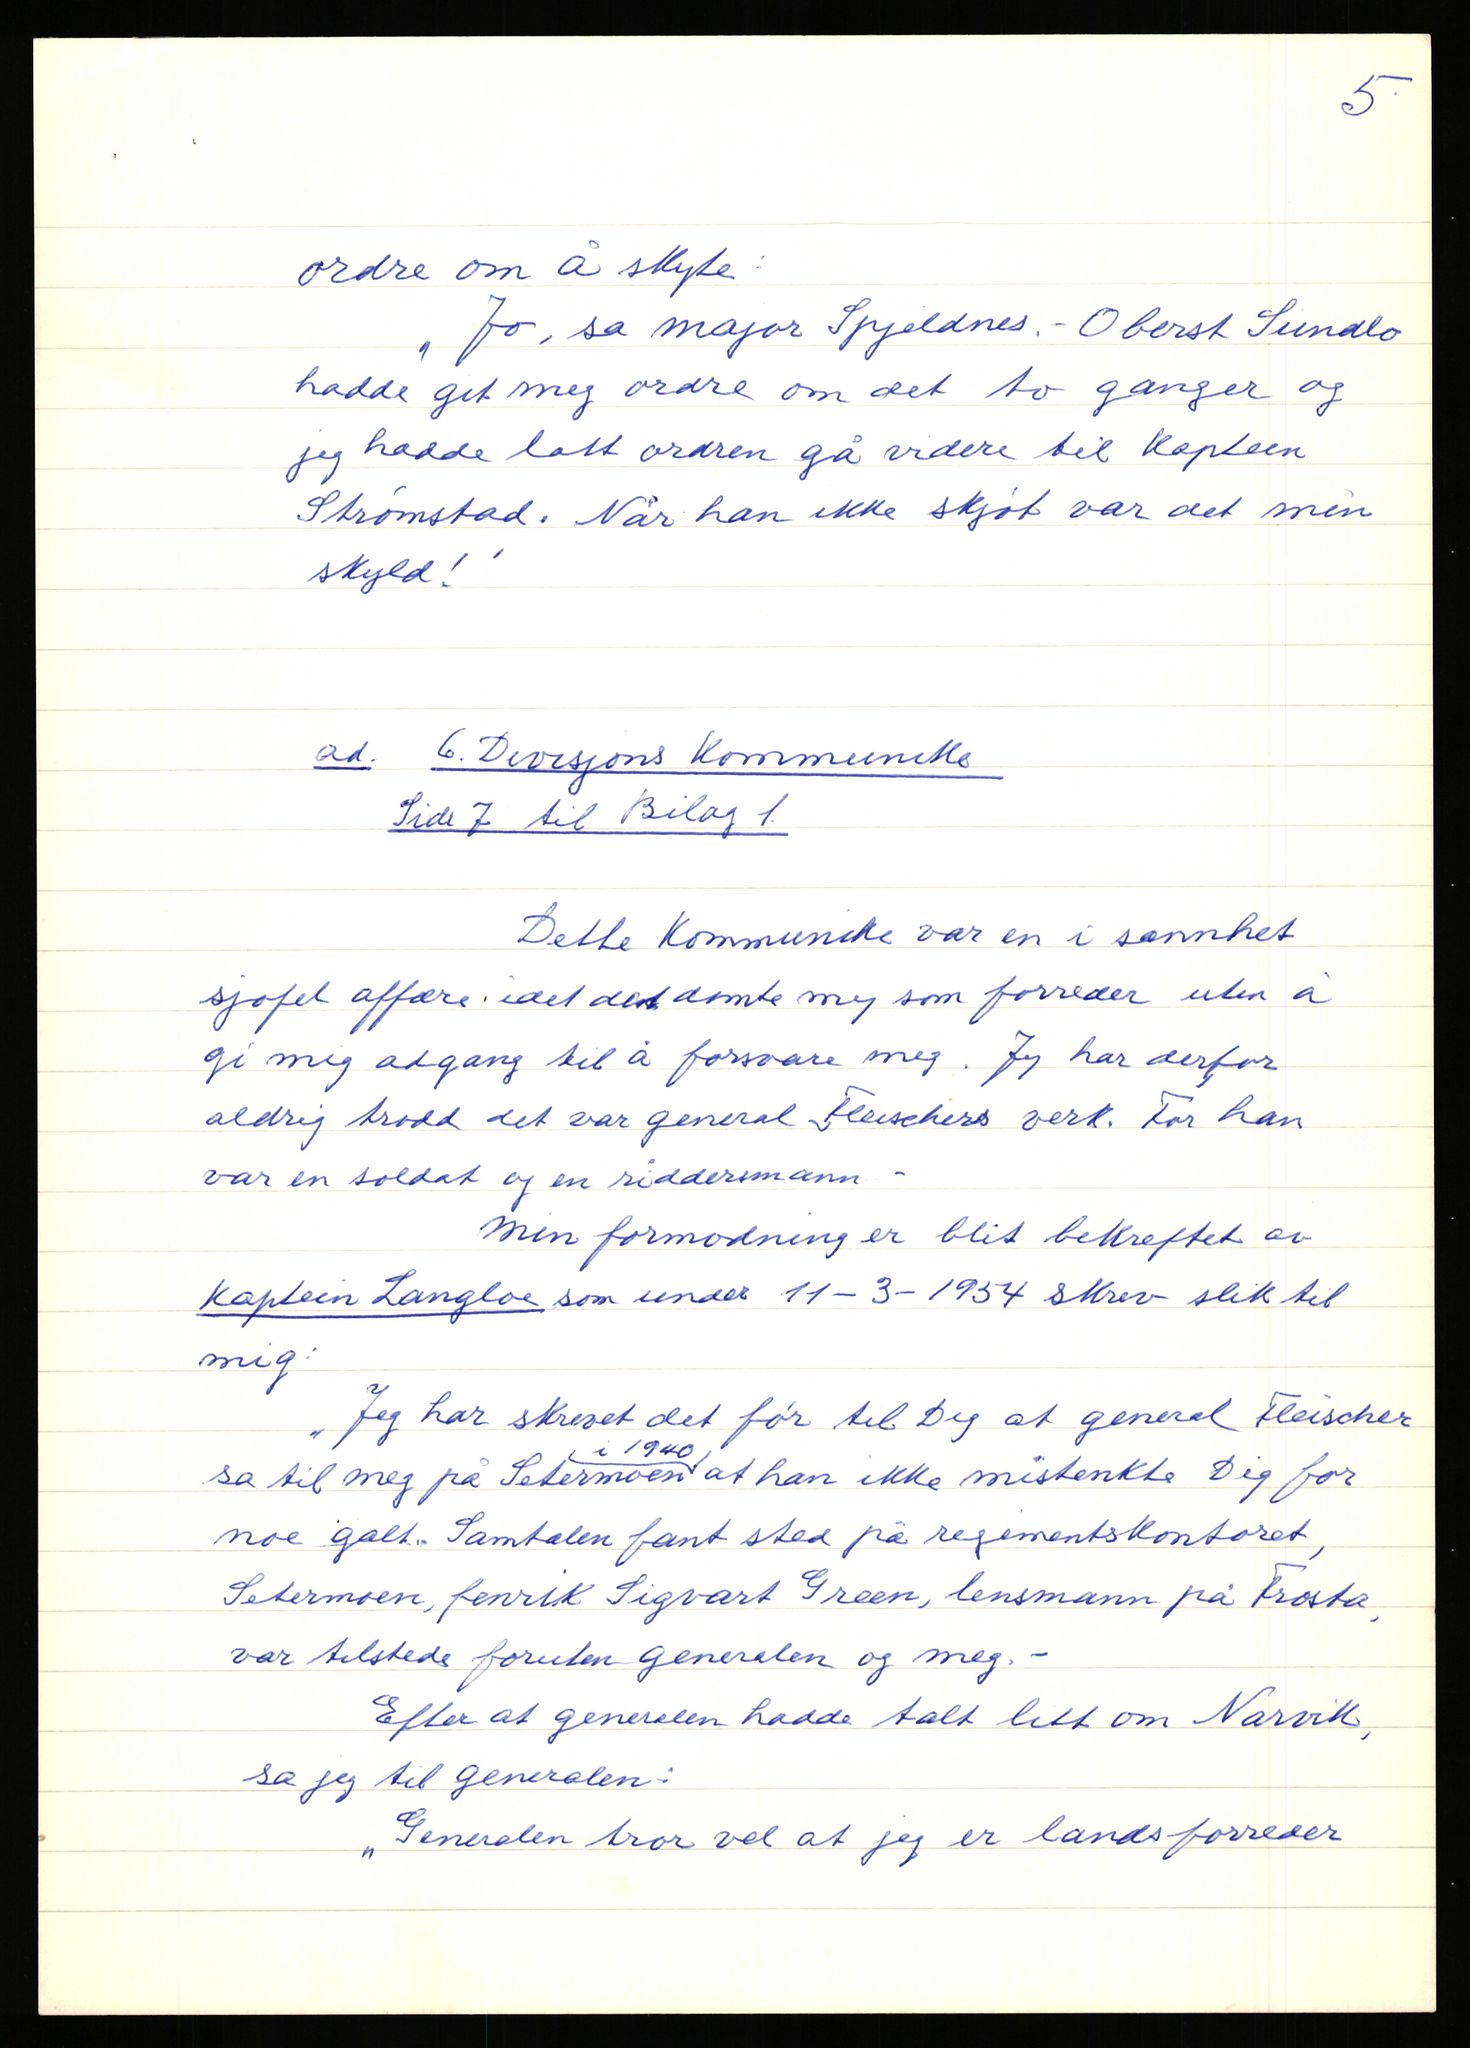 5
ordre om å skyte:
„Jo, sa major Spjeldnes. - Oberst Sundlo
hadde git meg ordre om det to ganger og
jeg hadde latt ordren gå videre til Kaptein
Strømstad. Når han ikke skjøt var det min
skyld!"
ad. 6. Divisjons Kommunike
Side 7 til Bilag 1.
Dette Kommunike var en i sannhet
sjofel affære idet det dømte meg som forreder uten å
gi mig adgang til å forsvare meg. Jeg har derfor
aldrig trodd det var general Fleischers verk. For han
var en soldat og en riddersmann -
Min formodning er blit bekreftet av
Kaptein Langloe som under 11-3-1954 skrev slik til
mig:
„Jeg har skrevet det før til Deg at general Fleischer
i 1940
sa til meg på Setermoen at han ikke mistenkte Dig for
noe galt. Samtalen fant sted på regimentskontoret,
Setermoen, fenrik Sigvart Green, lensmann på Frosta,
var tilstede foruten generalen og meg. -
Efter at generalen hadde talt litt om Narvik,
sa jeg til generalen:
„Generalen tror vel at jeg er landsforreder